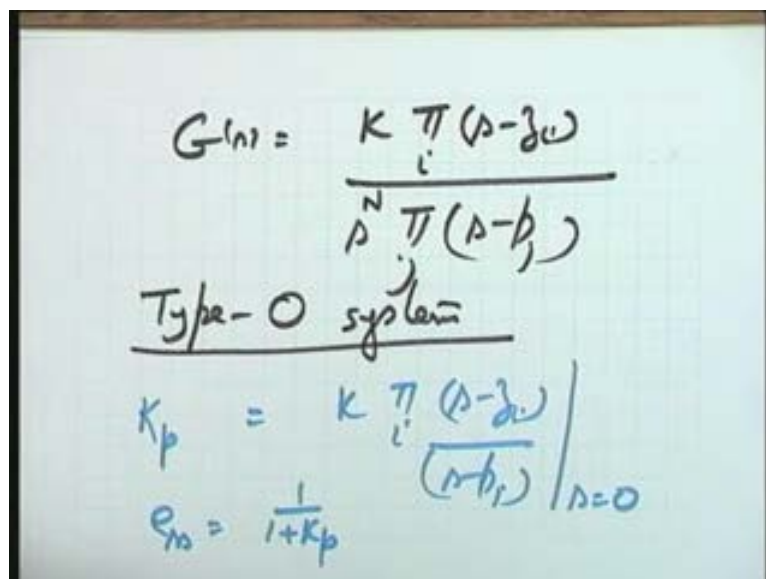 G(s) = K π i (s-zi)
s^N π j (s-pj)
Type-0 system
Kp = K π i (s-zi) / (s-pj) | s=0
ess = 1 / 1+Kp